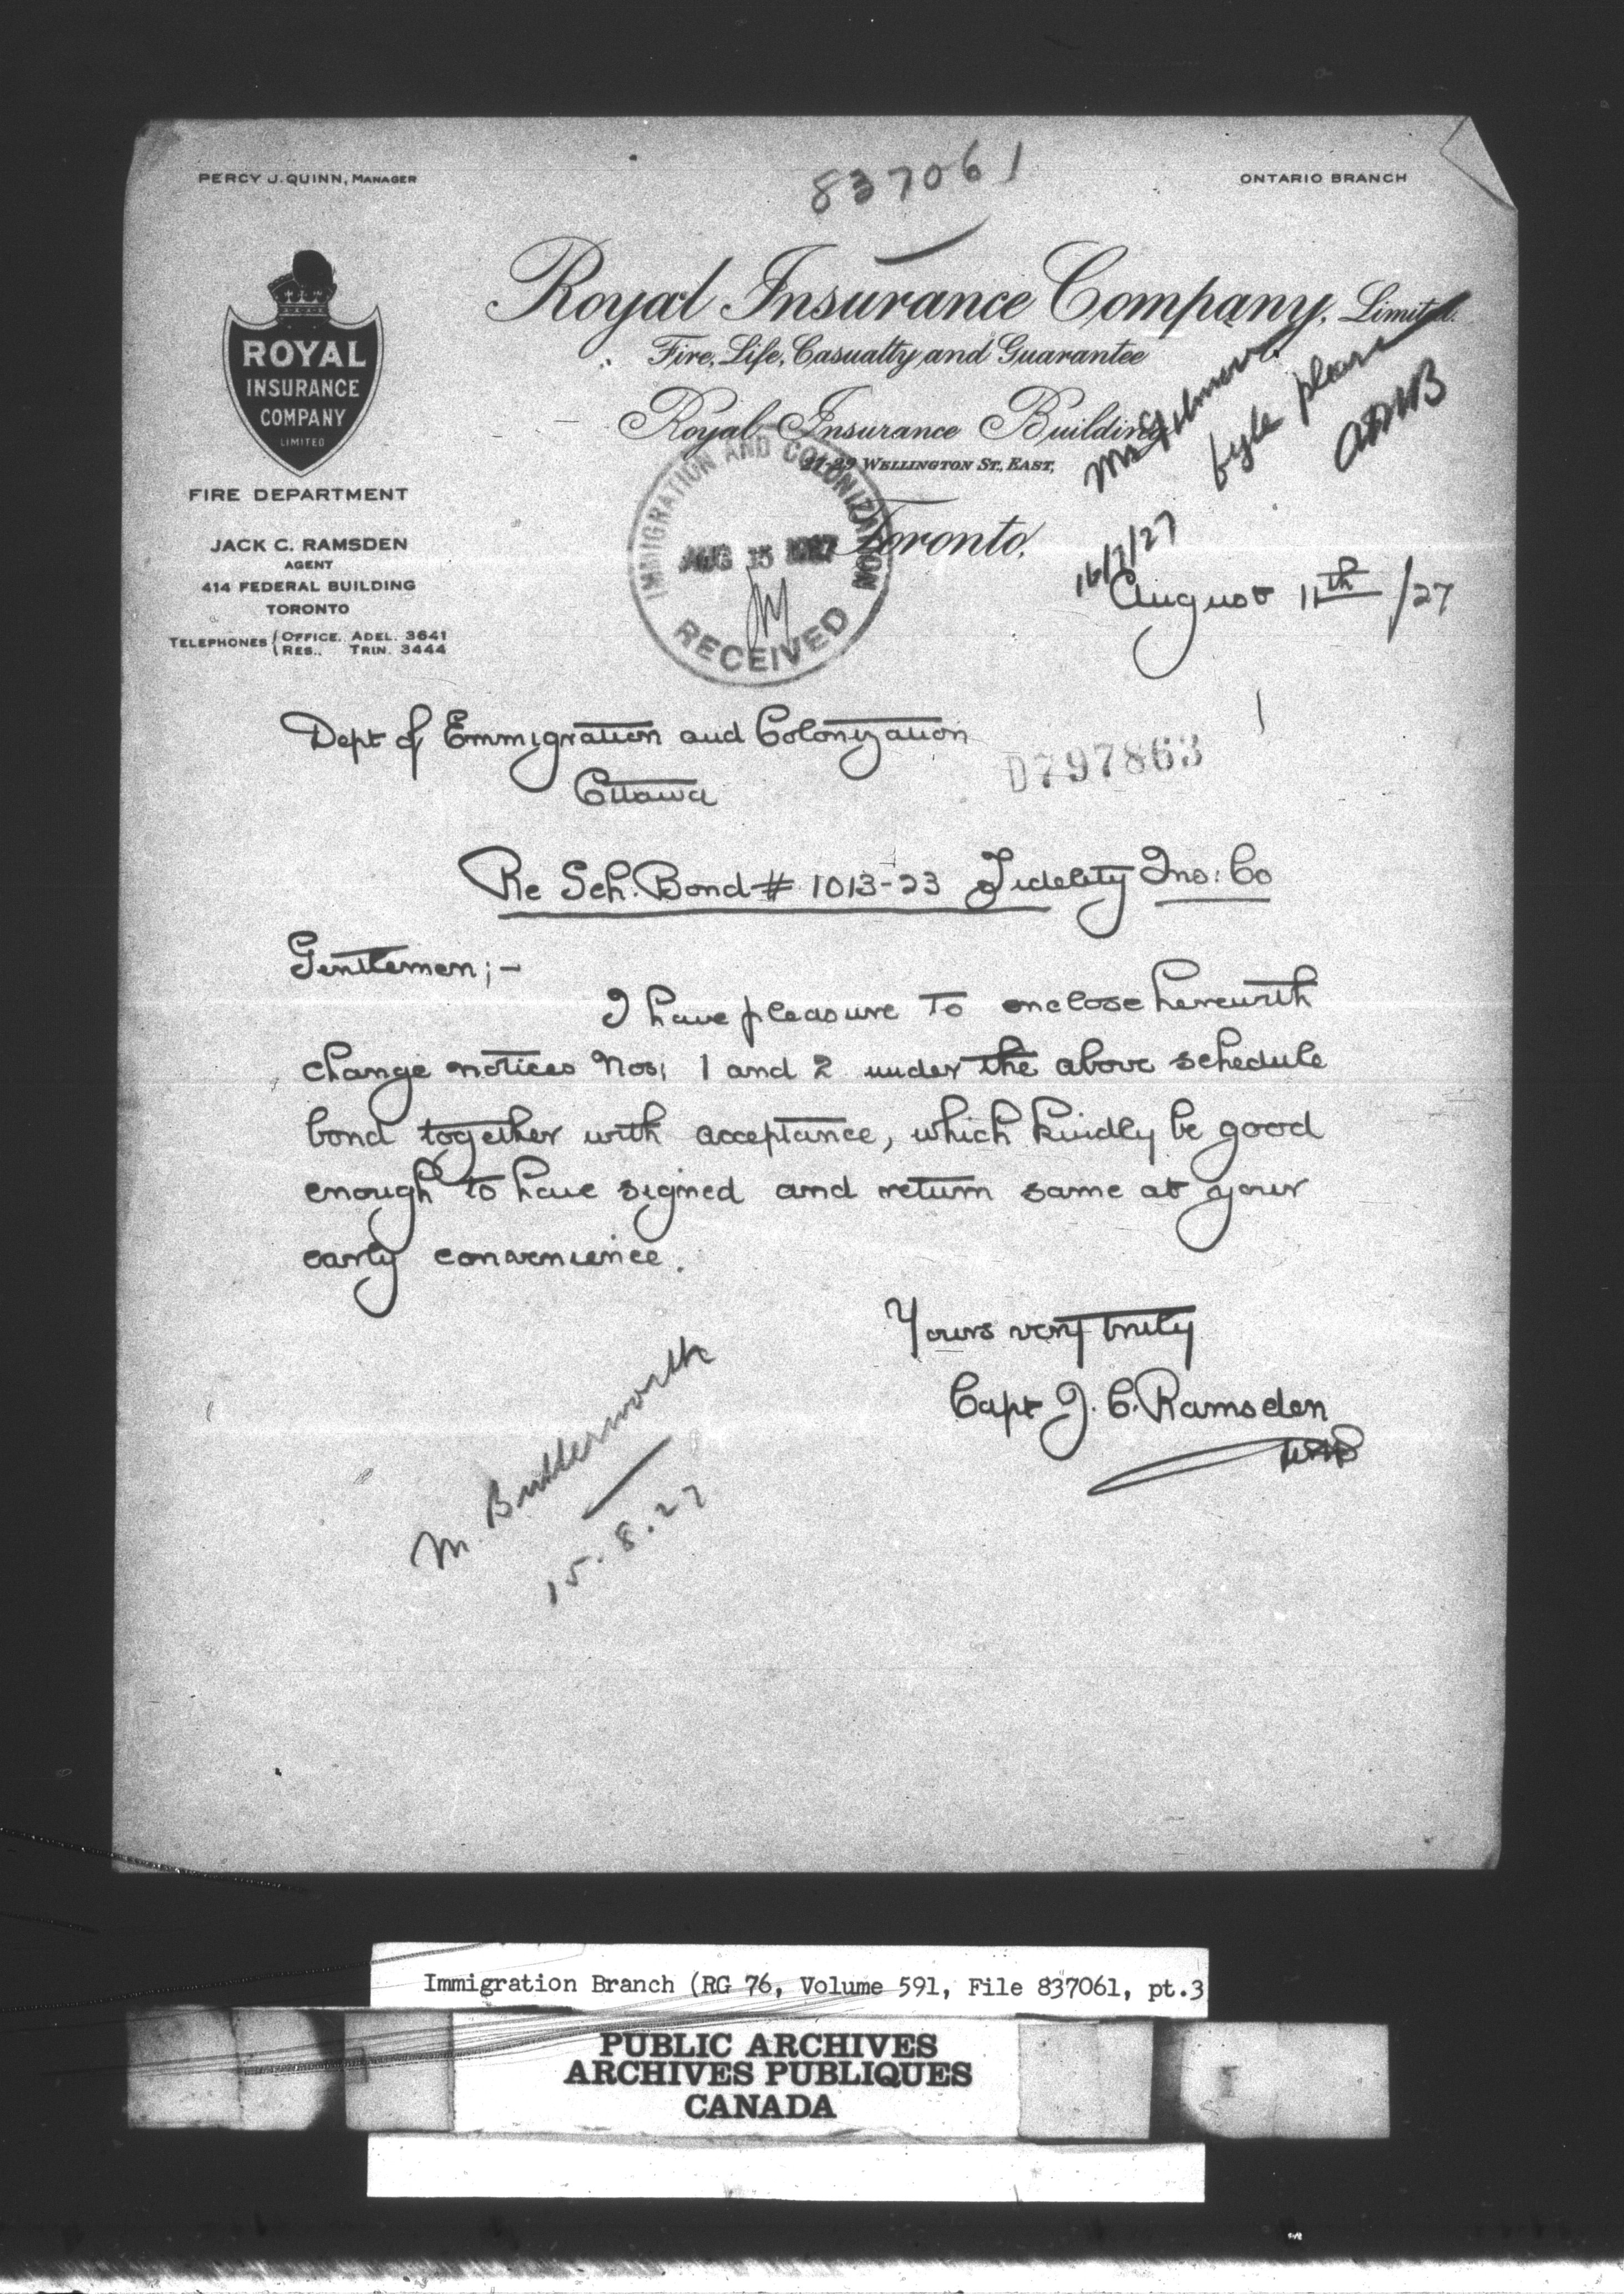 837061
PERCY J. QUINN, MANAGER
ONTARIO BRANCH
Royal Insurance Company, Limited.
Fire, Life, Casualty and Guarantee
Royal Insurance Building
27-29 WELLINGTON ST., EAST,
Toronto,
ROYAL
INSURANCE
COMPANY
LIMITED
FIRE DEPARTMENT
JACK C. RAMSDEN
AGENT
414 FEDERAL BUILDING
TORONTO
TELEPHONES { OFFICE. ADEL. 3641
RES.. TRIN. 3444
IMMIGRATION AND COLONIZATION
AUG 15 1927
RECEIVED
fyle please
August 11th /27
Dept of Emmigration and Colonization
Ottawa
D797863
Re Sch. Bond # 1013-23 Fidelity Ins: Co
Gentlemen;-
I have pleasure to enclose herewith
change notices Nos; 1 and 2 under the above schedule
bond together with acceptance, which kindly be good
enough to have signed and return same at your
early convenience.
Yours very truly
Capt J. C. Ramsden
M. Butterworth
15.8.27
Immigration Branch (RG 76, Volume 591, File 837061, pt.3
PUBLIC ARCHIVES
ARCHIVES PUBLIQUES
CANADA